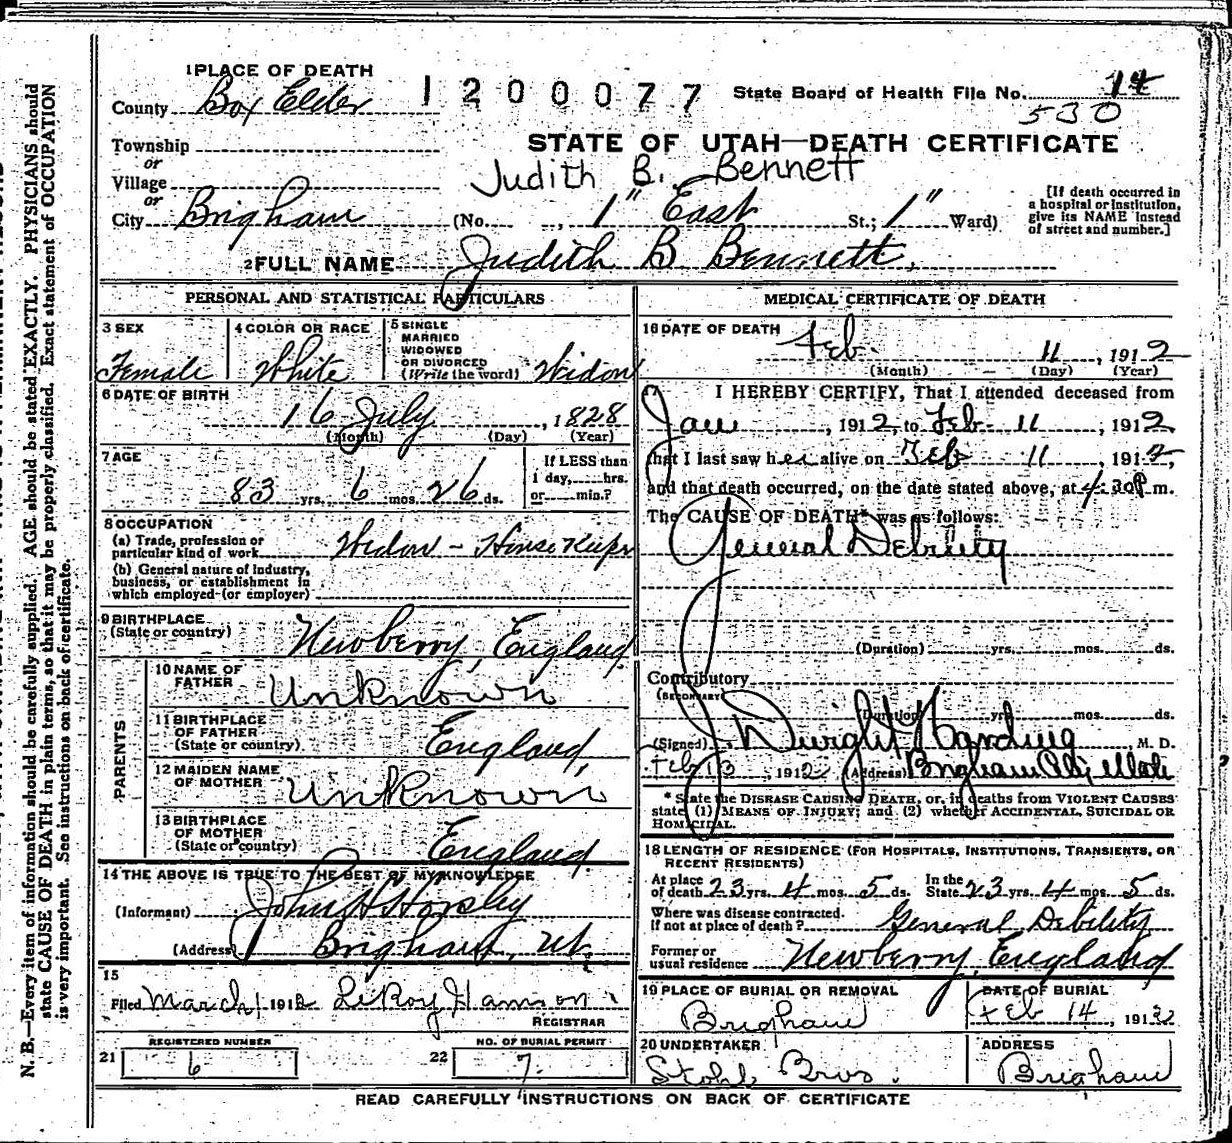 1 PLACE OF DEATH
County Box Elder
1200077
State Board of Health File No. 14
530
Township
or
Village
or
City Brigham
STATE OF UTAH—DEATH CERTIFICATE
Judith B. Bennett
(No. , 1" East St.; 1" Ward)
[If death occurred in a hospital or institution, give its NAME instead of street and number.]
2 FULL NAME Judith B Bennett.
PERSONAL AND STATISTICAL PARTICULARS
3 SEX
Female
4 COLOR OR RACE
White
5 SINGLE
MARRIED
WIDOWED
OR DIVORCED
(Write the word) Widow
6 DATE OF BIRTH
16 July, 1828
(Month) (Day) (Year)
7 AGE
83 yrs. 6 mos. 26 ds.
If LESS than
1 day, hrs.
or min.?
8 OCCUPATION
(a) Trade, profession or
particular kind of work Widow - House Keeper
(b) General nature of industry,
business, or establishment in
which employed (or employer)
9 BIRTHPLACE
(State or country) Newberry, England.
PARENTS
10 NAME OF
FATHER Unknown
11 BIRTHPLACE
OF FATHER
(State or country) England,
12 MAIDEN NAME
OF MOTHER Unknown
13 BIRTHPLACE
OF MOTHER
(State or country) England.
14 THE ABOVE IS TRUE TO THE BEST OF MY KNOWLEDGE
(Informant) John H Horsley
(Address) Brigham, Ut.
15
Filed March 1 1912 LeRoy Hamson
REGISTRAR
21 REGISTERED NUMBER
6
22 NO. OF BURIAL PERMIT
7.
MEDICAL CERTIFICATE OF DEATH
16 DATE OF DEATH
Feb. 11, 1912
(Month) (Day) (Year)
17 I HEREBY CERTIFY, That I attended deceased from
Jan , 1912, to Feb - 11 , 1912
that I last saw her alive on Feb 11 , 1912,
and that death occurred, on the date stated above, at 4:30P m.
The CAUSE OF DEATH* was as follows:
General Debility
(Duration) yrs. mos. ds.
Contributory
(SECONDARY)
(Duration) yrs. mos. ds.
(Signed) J Dwight Harding M. D.
Feb 13 , 1912 (Address) Brigham City, Utah
* State the DISEASE CAUSING DEATH, or, in deaths from VIOLENT CAUSES
state (1) MEANS OF INJURY; and (2) whether ACCIDENTAL, SUICIDAL OR
HOMICIDAL.
18 LENGTH OF RESIDENCE (FOR HOSPITALS, INSTITUTIONS, TRANSIENTS, OR
RECENT RESIDENTS)
At place
of death 23 yrs. 4 mos. 5 ds. In the
State 23 yrs. 4 mos. 5 ds.
Where was disease contracted,
if not at place of death? General Debility
Former or
usual residence Newberry, England
19 PLACE OF BURIAL OR REMOVAL
Brigham
DATE OF BURIAL
Feb 14, 1912
20 UNDERTAKER
Stohl Bros.
ADDRESS
Brigham
READ CAREFULLY INSTRUCTIONS ON BACK OF CERTIFICATE
N. B.—Every item of information should be carefully supplied. AGE should be stated EXACTLY. PHYSICIANS should
state CAUSE OF DEATH in plain terms, so that it may be properly classified. Exact statement of OCCUPATION
is very important. See instructions on back of certificate.